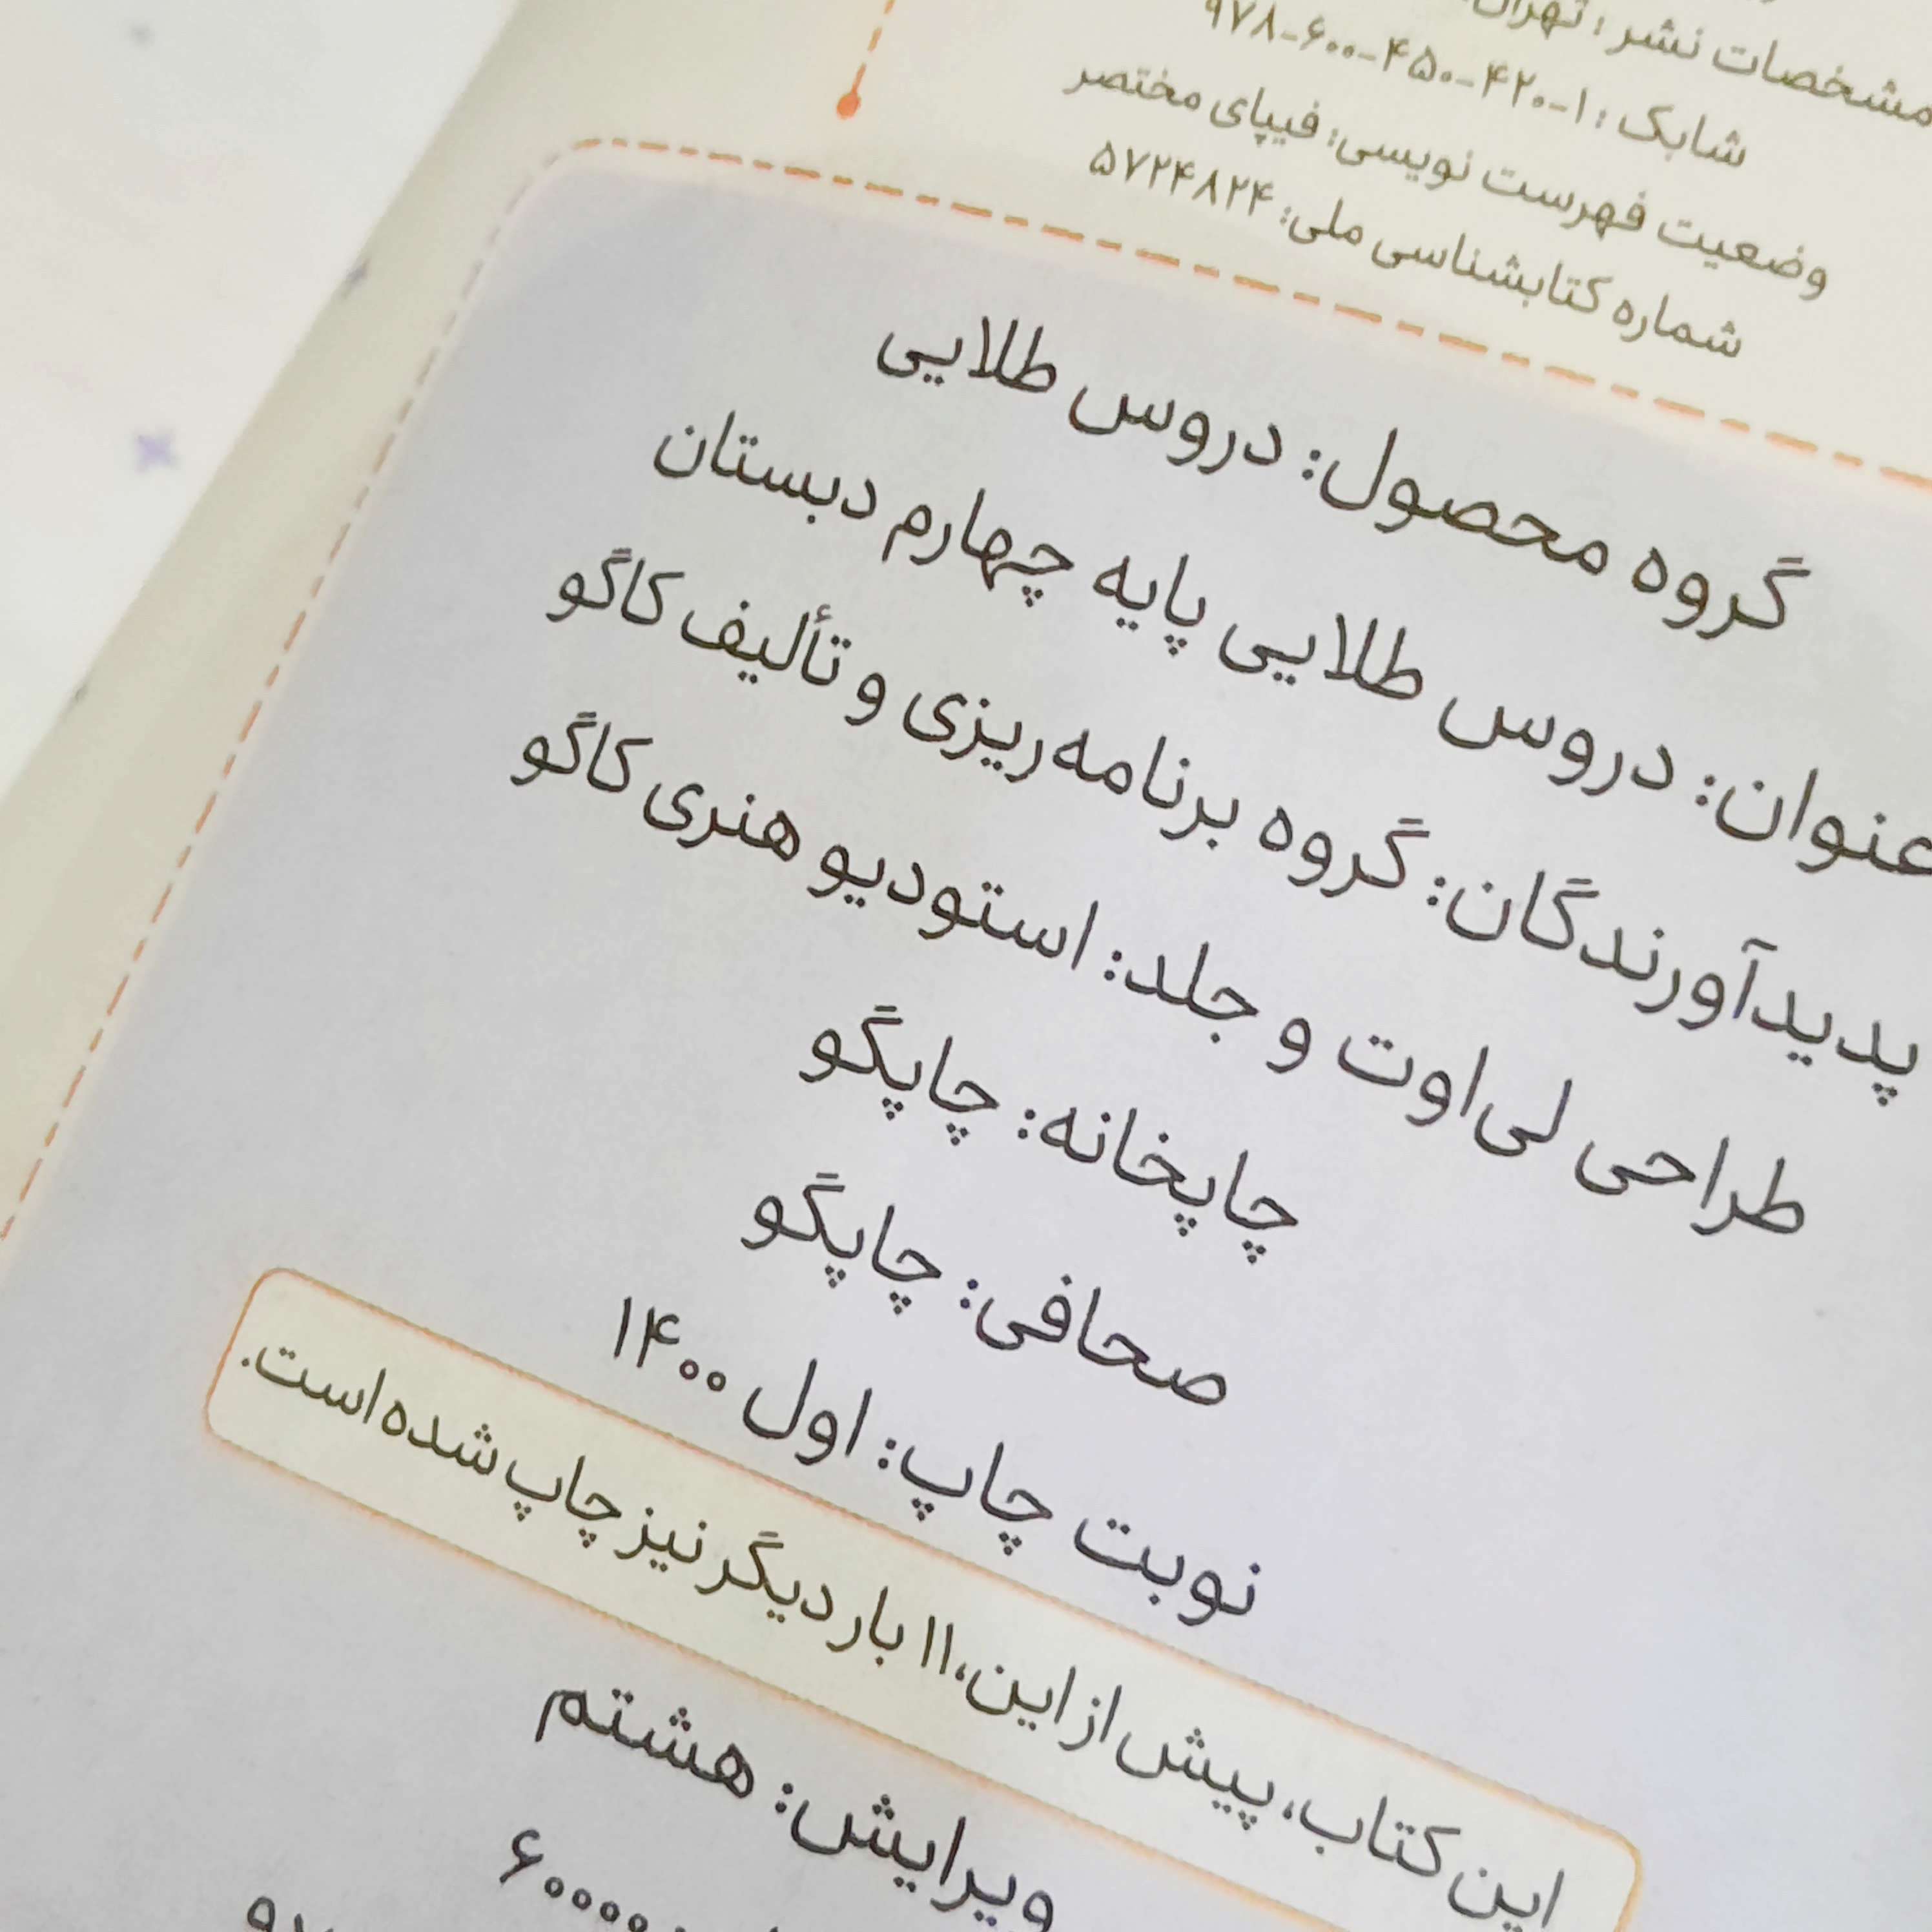 مشخصات نشر : تهران
شابک : ۱-۴۲۰-۴۵۰-۶۰۰-۹۷۸
وضعیت فهرست نویسی: فیپای مختصر
شماره کتابشناسی ملی: ۵۷۲۴۸۲۴
گروه محصول: دروس طلایی
عنوان: دروس طلایی پایه چهارم دبستان
پدیدآورندگان: گروه برنامه‌ریزی و تألیف کاگو
طراحی لی‌اوت و جلد: استودیو هنری کاگو
چاپخانه: چاپگو
صحافی: چاپگو
نوبت چاپ: اول ۱۴۰۰
این کتاب، پیش از این، ۱۱ بار دیگر نیز چاپ شده است.
ویرایش: هشتم